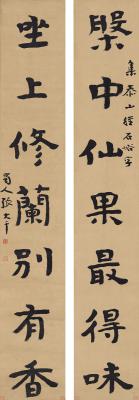 槃中仙果最得味
集泰山經石峪字
坐上修蘭別有香
蜀人張大千